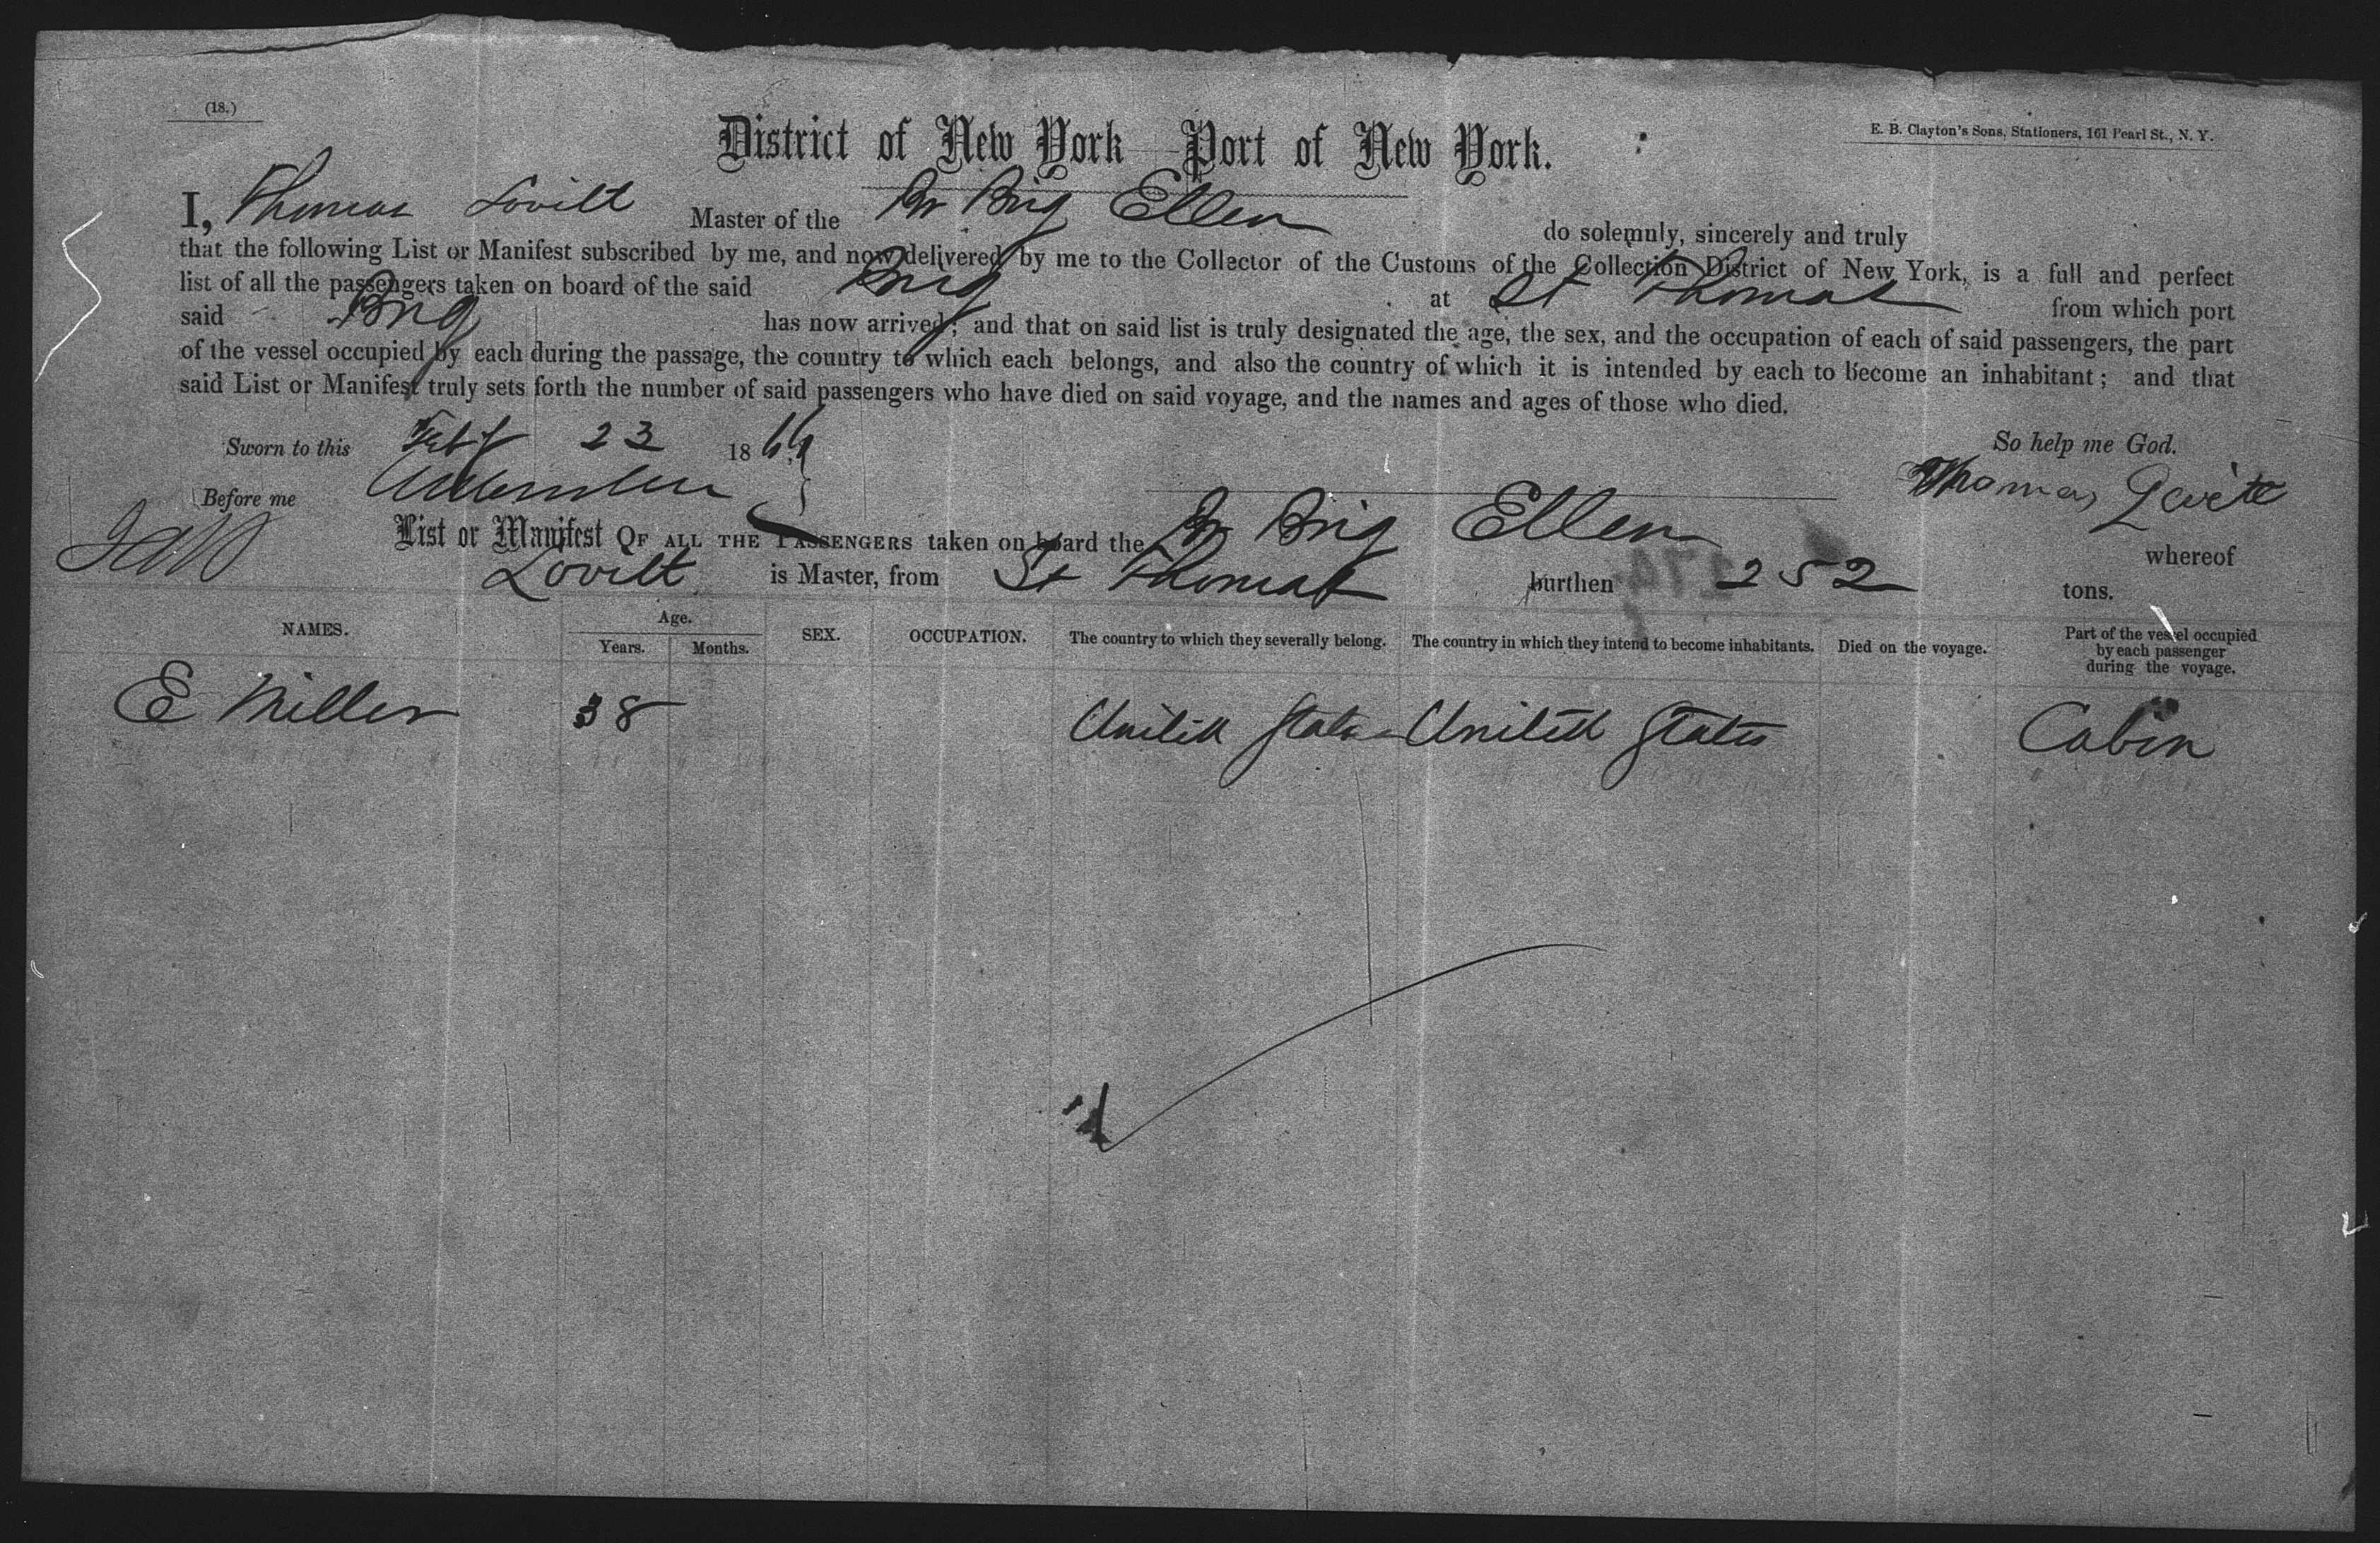 (18.)
E. B. Clayton's Sons, Stationers, 161 Pearl St., N. Y.
District of New York—Port of New York.
I, Thomas Lovitt Master of the Br Brig Ellen do solemnly, sincerely and truly
that the following List or Manifest subscribed by me, and now delivered by me to the Collector of the Customs of the Collection District of New York, is a full and perfect
list of all the passengers taken on board of the said Brig at St Thomas from which port
said Brig has now arrived; and that on said list is truly designated the age, the sex, and the occupation of each of said passengers, the part
of the vessel occupied by each during the passage, the country to which each belongs, and also the country of which it is intended by each to become an inhabitant; and that
said List or Manifest truly sets forth the number of said passengers who have died on said voyage, and the names and ages of those who died.
Sworn to this Feby 23 1866
So help me God.
Before me
Thomas Lovitt
List or Manifest OF ALL THE PASSENGERS taken on board the Br Brig Ellen whereof
Lovitt is Master, from St Thomas burthen 252 tons.
NAMES. Age. Years. Months. SEX. OCCUPATION. The country to which they severally belong. The country in which they intend to become inhabitants. Died on the voyage. Part of the vessel occupied by each passenger during the voyage.
E Miller 38 United States United States Cabin